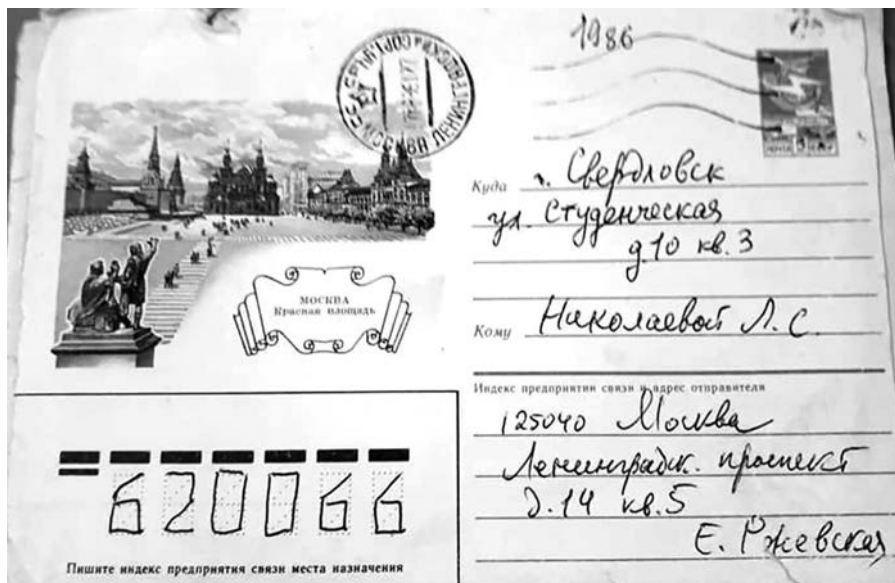 1986
МОСКВА
Красная площадь
Куда г. Свердловск
ул. Студенческая
д.10 кв. 3
Кому Николаевой Л. С.
Индекс предприятия связи и адрес отправителя
125040 Москва
Ленинградск. проспект
д. 14 кв. 5
Е. Ржевская
620066
Пишите индекс предприятия связи места назначения